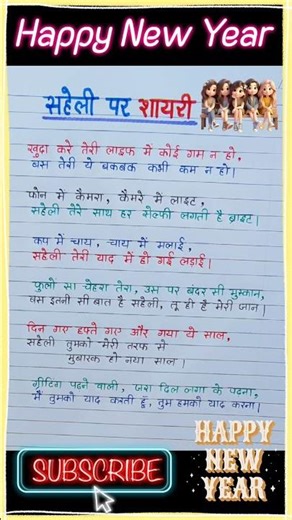 Happy New Year
सहेली पर शायरी
खुदा करे तेरी लाइफ मे कोई गम न हो,
बस तेरी ये बकबक कभी कम न हो।
फोन में कैमरा, कैमरे में लाइट,
सहेली तेरे साथ हर सेल्फी लगती है ब्राइट।
कप में चाय, चाय में मलाई,
सहेली तेरी याद में हो गई लड़ाई।
फूलों सा चेहरा तेरा, उस पर बंदर सी मुस्कान,
बस इतनी सी बात है सहेली, तू ही है मेरी जान।
दिन गए हफ्ते गए और गया ये साल,
सहेली तुमको मेरी तरफ से
मुबारक हो नया साल।
ग्रीटिंग पढ़ने वाली, जरा दिल लगा के पढ़ना,
मैं तुमको याद करती हूँ, तुम हमको याद करना।
SUBSCRIBE
HAPPY
NEW
YEAR